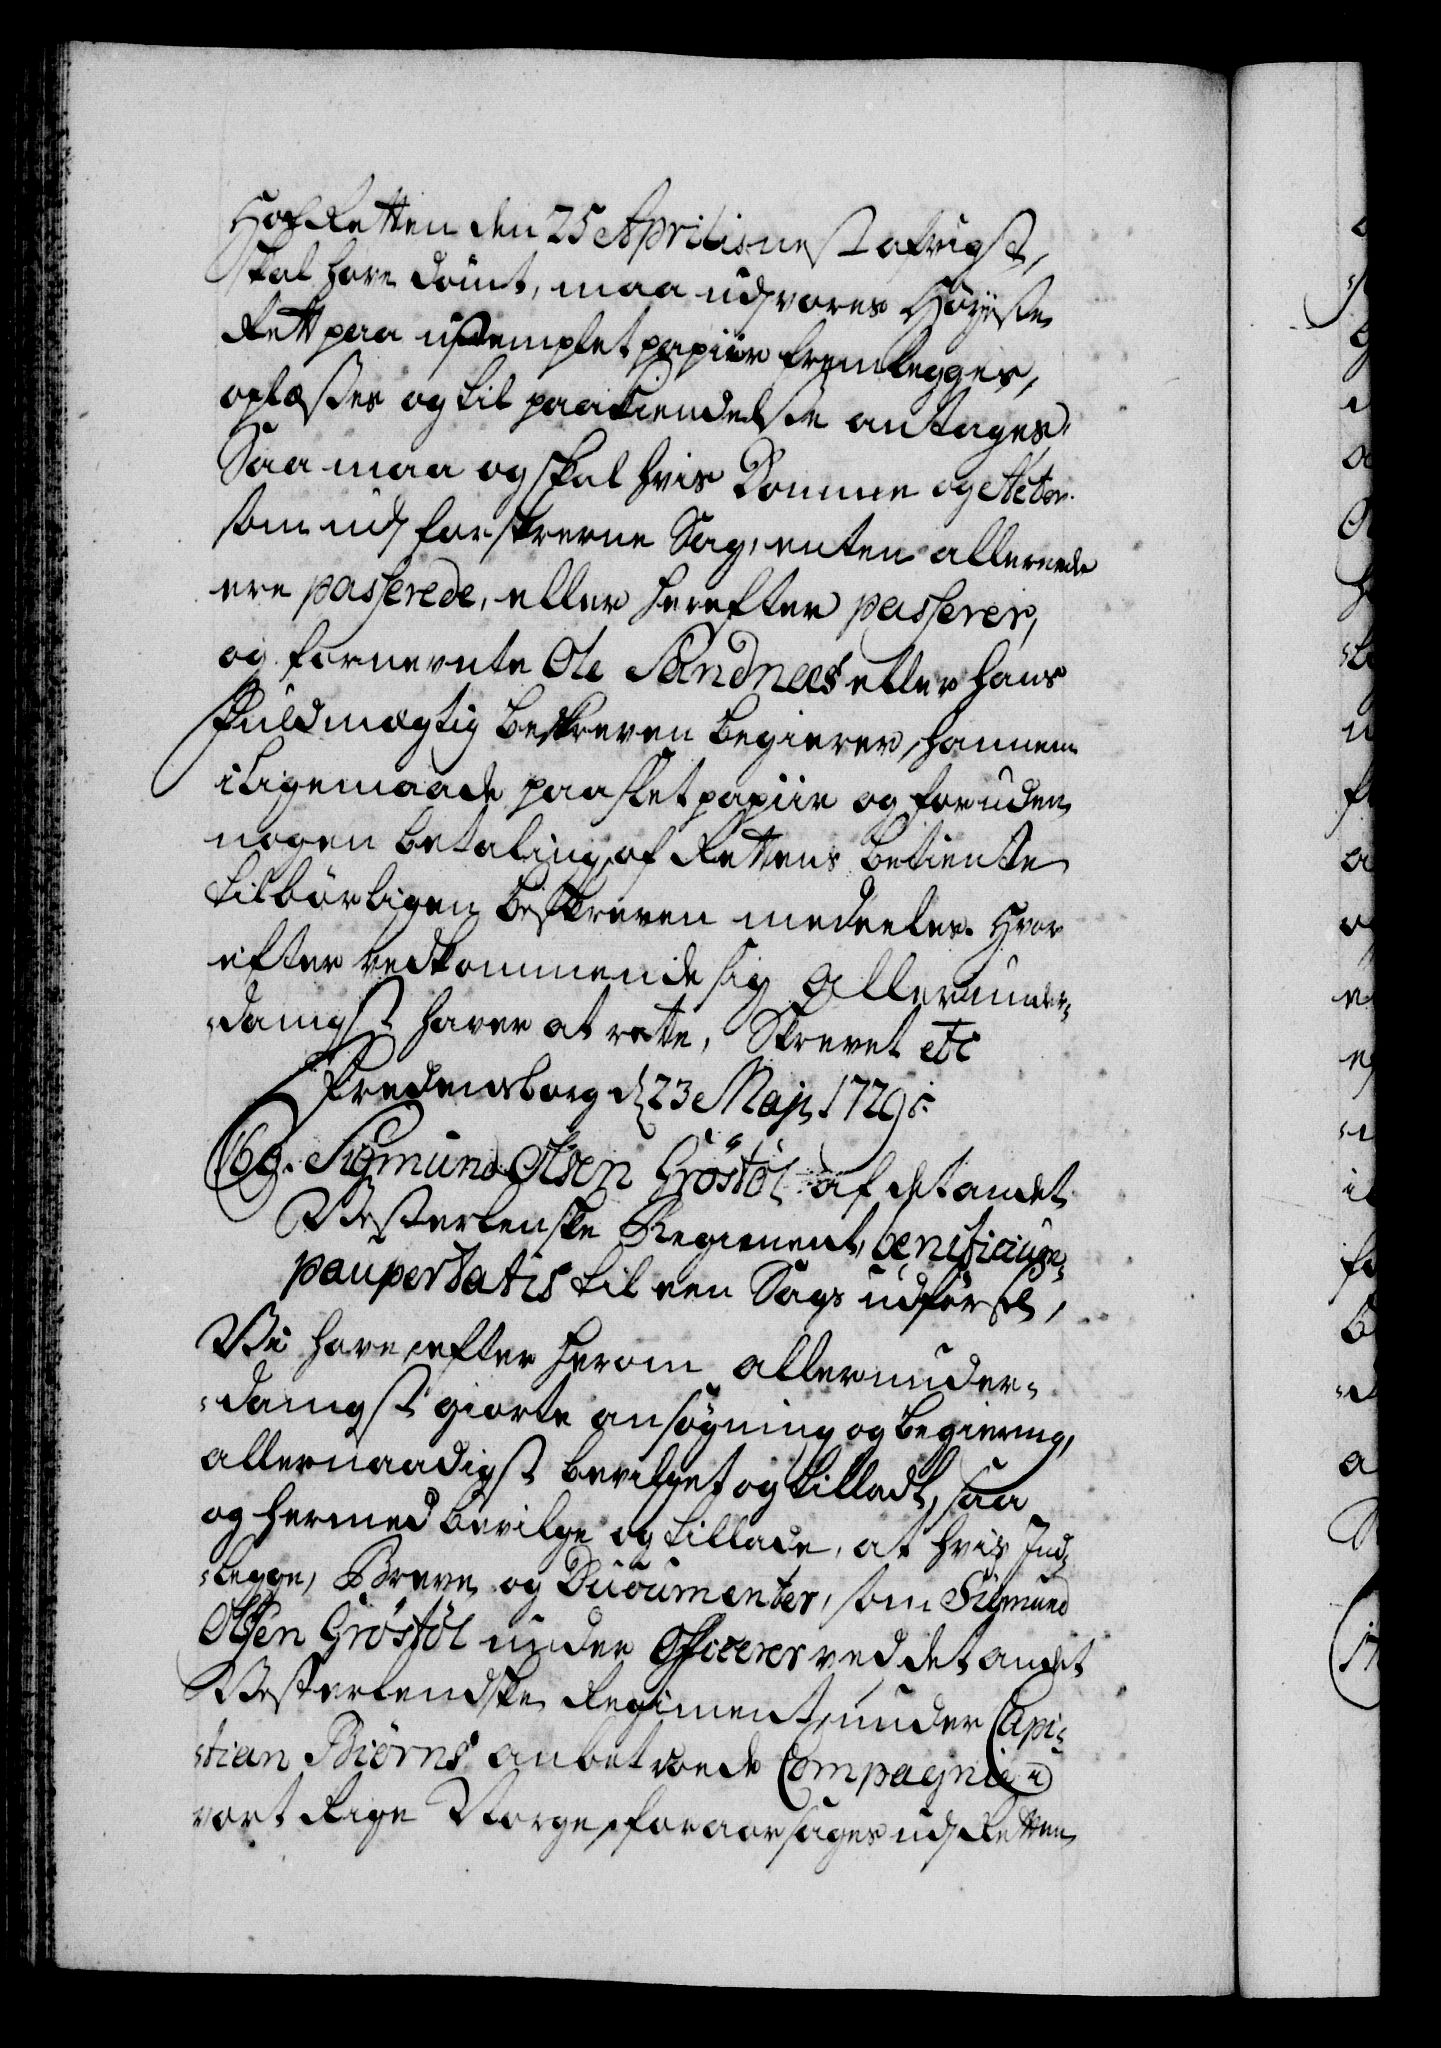 HofRetten den 25 Aprilis nest afvigt,
skal have dömt, maa ved vores Höyeste
Rett paa ustemplet papiir fremlegges,
oplæses og til paakiendelse antages.
Saa maa og skal hvis Domme og Acter
som ved forskrevne Sag, enten allerede
ere passerede, eller herefter passerer,
og fornevnte Ole Sandnees eller hans
Fuldmægtig beskreven begierer, hannem
i ligemaade paa slet papiir og foruden
nogen betaling af Rettens betiente
tilbörligen beskreven meddeeles. Hvor
efter vedkommende sig allerunder-
-danigst haver at rette, Skrevet etc
Fredensborg d 23 Maji 1729.
160. Sigmund Olsen Gröstöl af det andet
Westerlenske Regiment, benificium
paupertatis til een Sags udförsel,
Vi have, efter herom allerunder-
-danigst giorte ansögning og begiering,
allernaadigst bevilget og tilladt, saa
og hermed bevilge og tillade, at hvis Ind-
-legge, Breve og Documenter, som Sigmund
Olsen Gröstöl under Officerer ved det andet
Westerlendske Regiment, under Capi-
-tian Biörns anbetroede Compagnie i
vort Rige Norge, foraarsages ved Retten